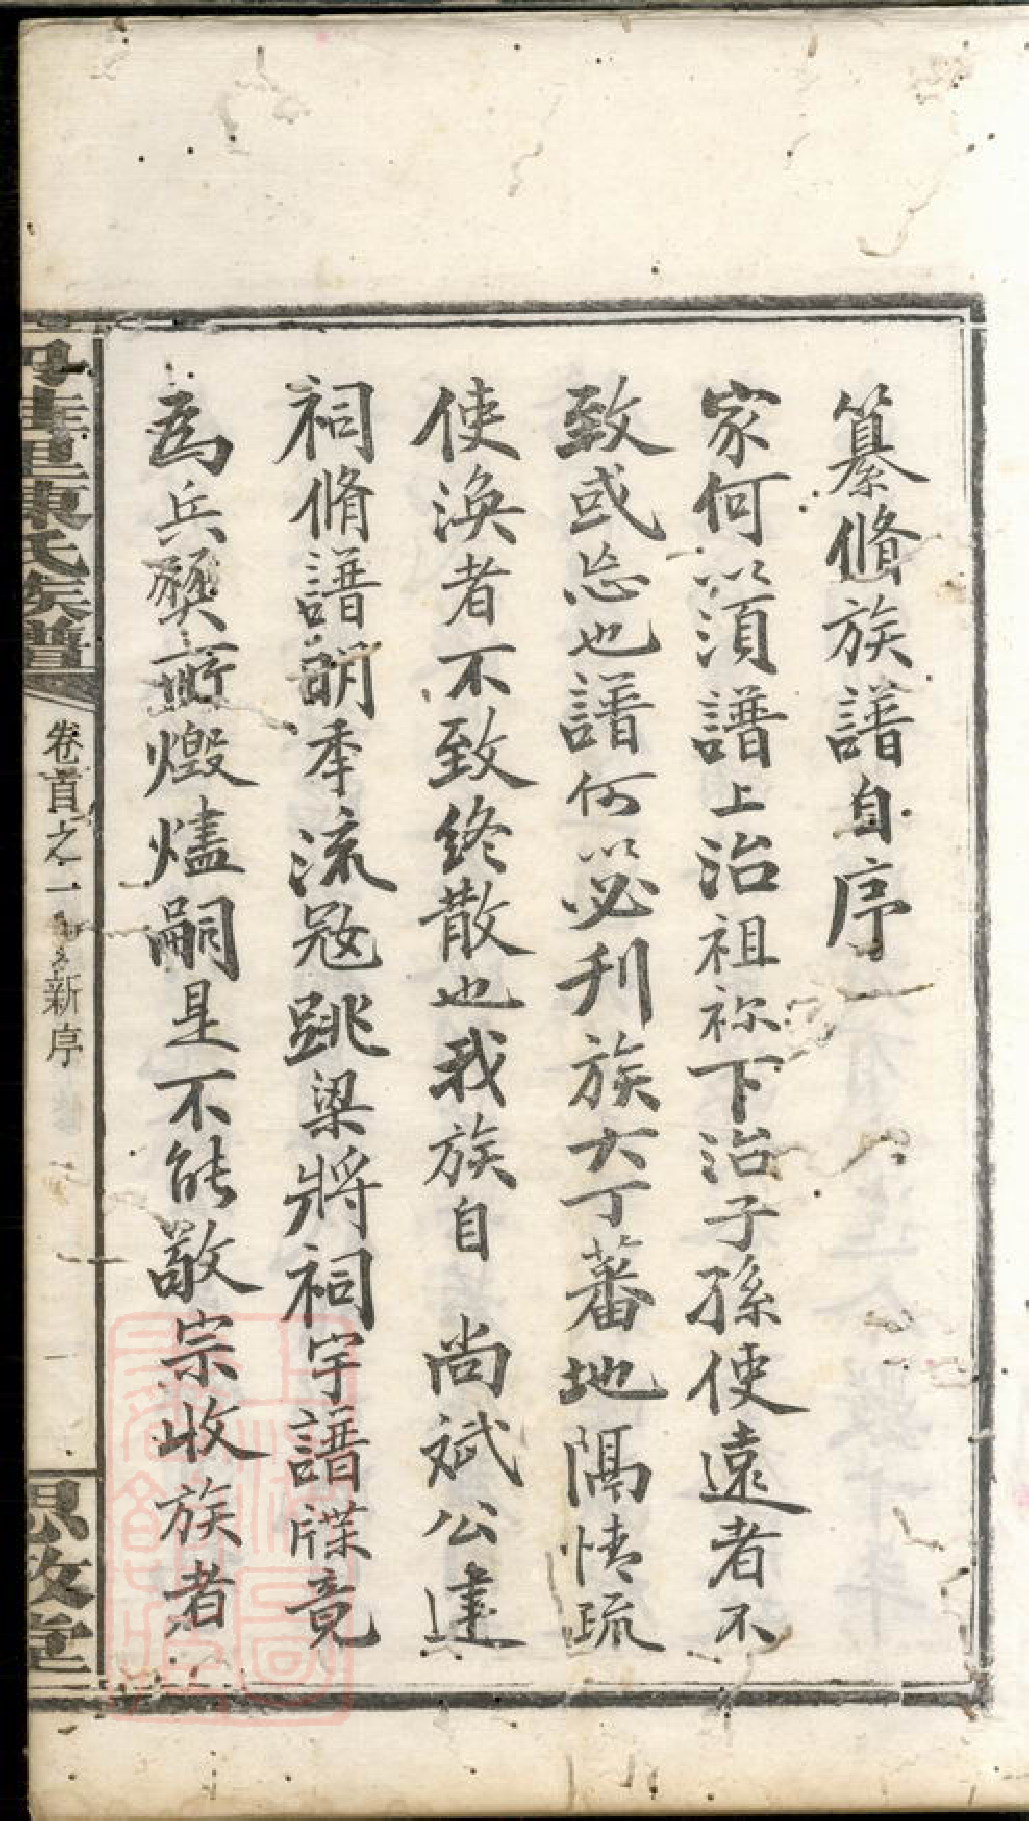 纂脩族譜自序
家何以須譜上治祖祢下治子孫使遠者不
致或忘也譜何以必刋族大丁蕃地隔情疏
使渙者不致終散也我族自 尚斌公建
祠脩譜明季流冦跳梁將祠宇譜牒竟
為兵燹所燬燼嗣是不能敬宗收族者
里東氏族譜
卷首之一 新序
思敬堂